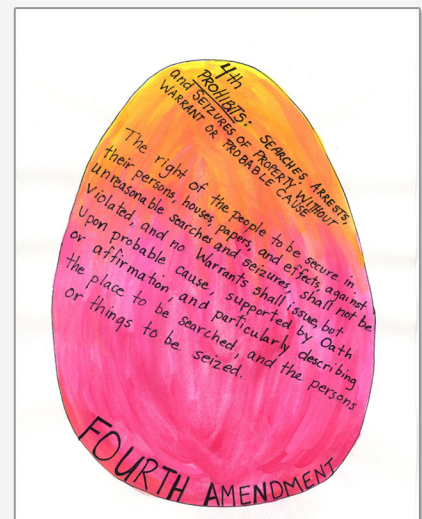 4th
PROHIBITS: SEARCHES, ARRESTS,
and SEIZURES OF PROPERTY WITHOUT
WARRANT OR PROBABLE CAUSE
The right of the people to be secure in
their persons, houses, papers, and effects, against
unreasonable searches and seizures, shall not be
violated, and no Warrants shall issue, but
upon probable cause, supported by Oath
or affirmation, and particularly describing
the place to be searched, and the persons
or things to be seized.
FOURTH AMENDMENT